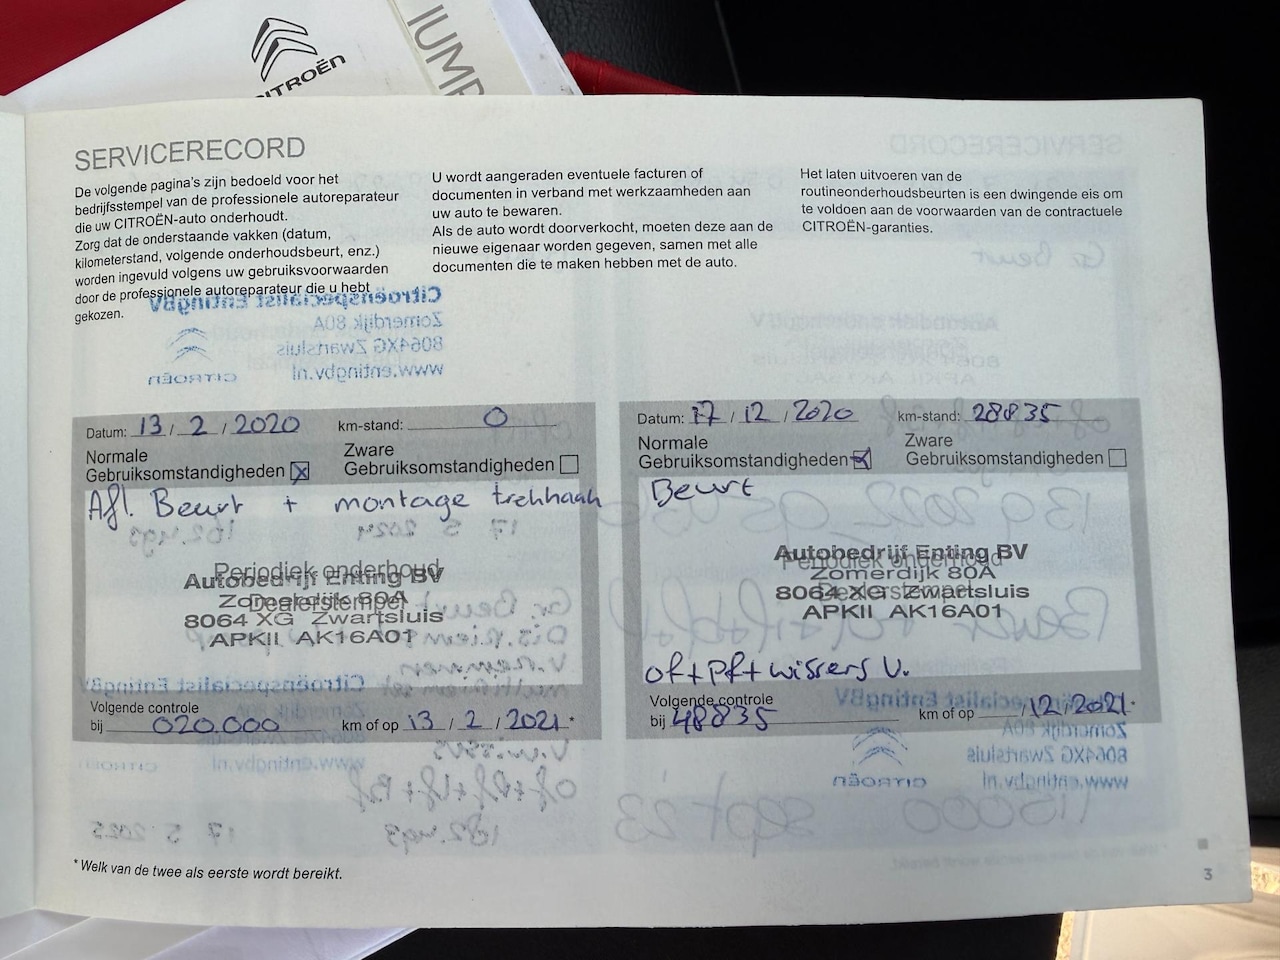 CITROËN
JUMP
SERVICERECORD
De volgende pagina's zijn bedoeld voor het
bedrijfsstempel van de professionele autoreparateur
die uw CITROËN-auto onderhoudt.
Zorg dat de onderstaande vakken (datum,
kilometerstand, volgende onderhoudsbeurt, enz.)
worden ingevuld volgens uw gebruiksvoorwaarden
door de professionele autoreparateur die u hebt
gekozen.
U wordt aangeraden eventuele facturen of
documenten in verband met werkzaamheden aan
uw auto te bewaren.
Als de auto wordt doorverkocht, moeten deze aan de
nieuwe eigenaar worden gegeven, samen met alle
documenten die te maken hebben met de auto.
Het laten uitvoeren van de
routineonderhoudsbeurten is een dwingende eis om
te voldoen aan de voorwaarden van de contractuele
CITROËN-garanties.
Datum: 13 / 2 / 2020 km-stand: 0
Normale
Gebruiksomstandigheden x
Zware
Gebruiksomstandigheden
Afl. Beurt + montage trekhaak
Periodiek onderhoud
Autobedrijf Enting BV
Zomerdijk 80A
Dealerstempel
8064 XG Zwartsluis
APKII AK16A01
Volgende controle
bij 020.000 km of op 13 / 2 / 2021 *
Datum: 17 / 12 / 2020 km-stand: 28835
Normale
Gebruiksomstandigheden x
Zware
Gebruiksomstandigheden
Beurt
Autobedrijf Enting BV
Periodiek onderhoud
Zomerdijk 80A
Dealerstempel
8064 XG Zwartsluis
APKII AK16A01
of + pf + wissers v.
Volgende controle
bij 48835 km of op / 12 / 2021 *
* Welk van de twee als eerste wordt bereikt.
3